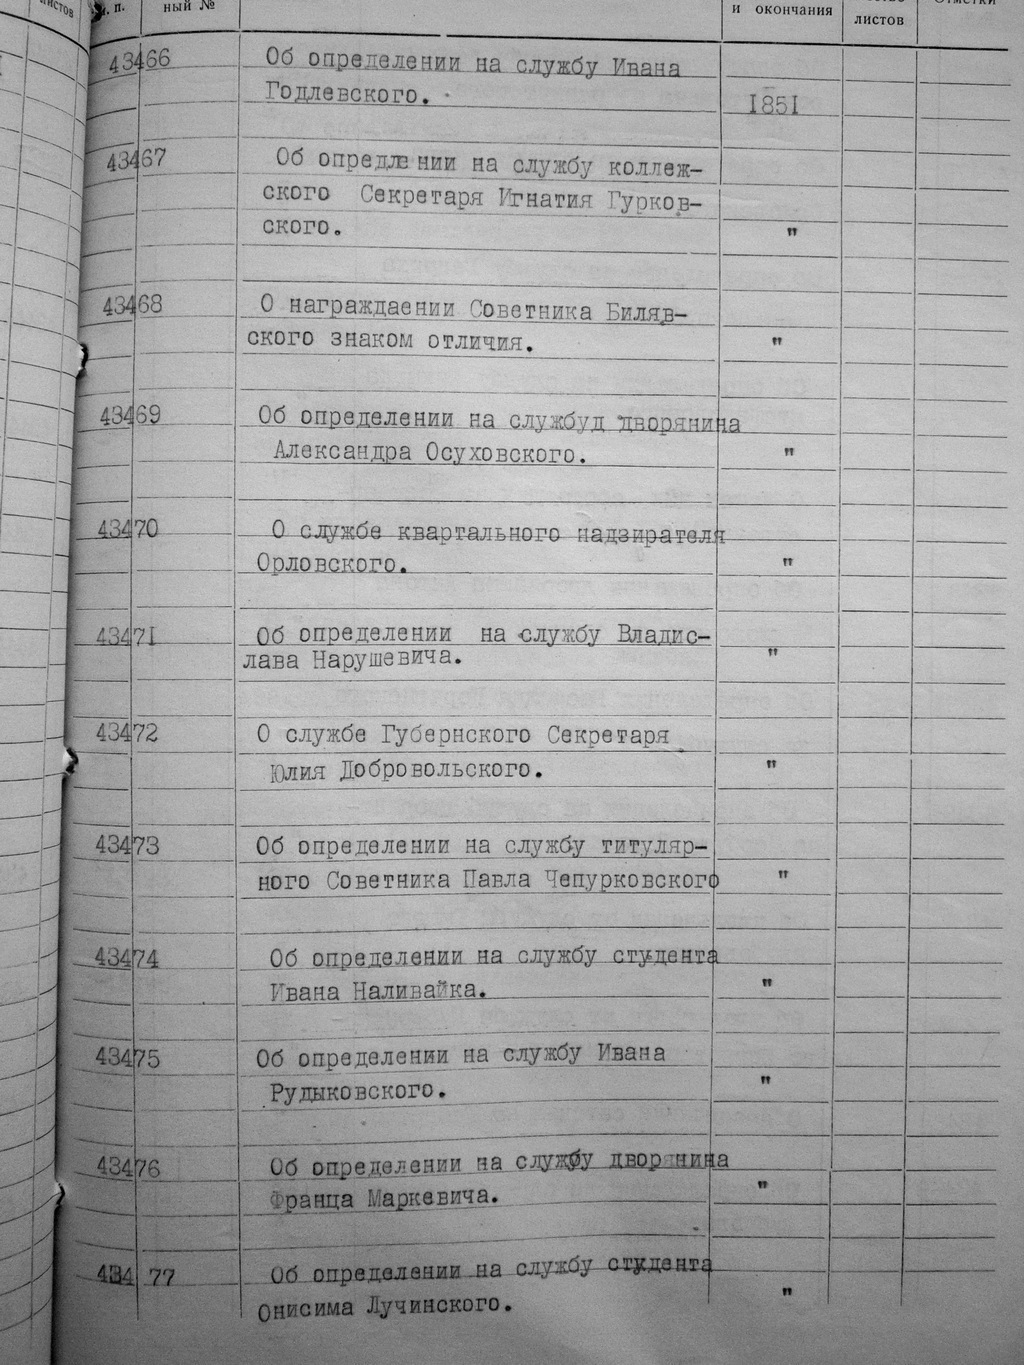 листов
п. п.
ный №
и окончания
листов
Отметки
43466 Об определении на службу Ивана
Годлевского.
1851
43467 Об опредле нии на службу коллеж-
ского Секретаря Игнатия Гурков-
ского. "
43468 О награждаении Советника Биляв-
ского знаком отличия. "
43469 Об определении на службуд дворянина
Александра Осуховского. "
43470 О службе квартального надзирателя
Орловского. "
43471 Об определении на службу Владис-
лава Нарушевича. "
43472 О службе Губернского Секретаря
Юлия Добровольского. "
43473 Об определении на службу титуляр-
ного Советника Павла Чепурковского "
43474 Об определении на службу студента
Ивана Наливайка. "
43475 Об определении на службу Ивана
Рудыковского. "
43476 Об определении на службу дворянина
Франца Маркевича. "
43477 Об определении на службу студента
Онисима Лучинского. "